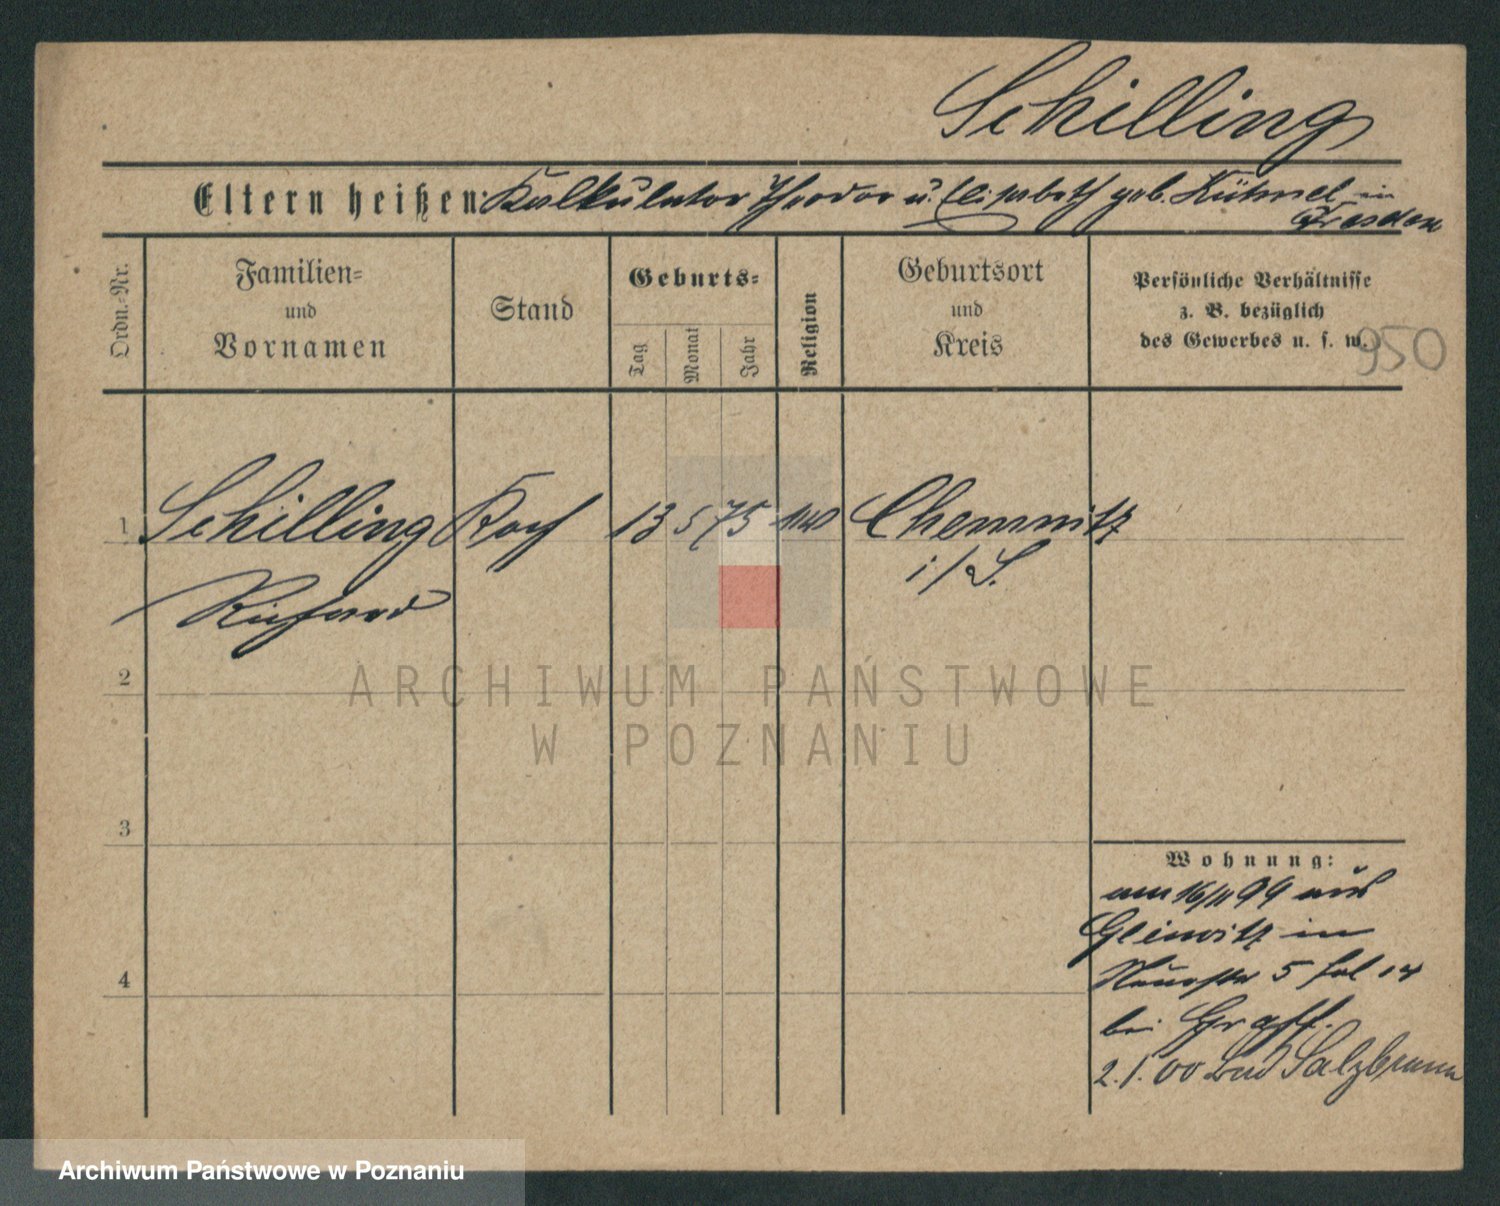 Schilling
Eltern heißen: Kalkulator Theodor u. Elisabeth geb. Kühnel in
Dresden
Ordn.-Nr.
Familien-
und
Vornamen
Stand
Geburts-
Tag
Monat
Jahr
Religion
Geburtsort
und
Kreis
Persönliche Verhältnisse
z. B. bezüglich
des Gewerbes u. s. w.
950
1 Schilling Koch 13 5 75 Chemnitz
i/S.
Richard
2
ARCHIWUM PAŃSTWOWE
W POZNANIU
3
Wohnung:
am 16/11 99 aus
Gleiwitz in
5
4
bei Graff.
2.1.00 Bad Salzbrunn
Archiwum Państwowe w Poznaniu